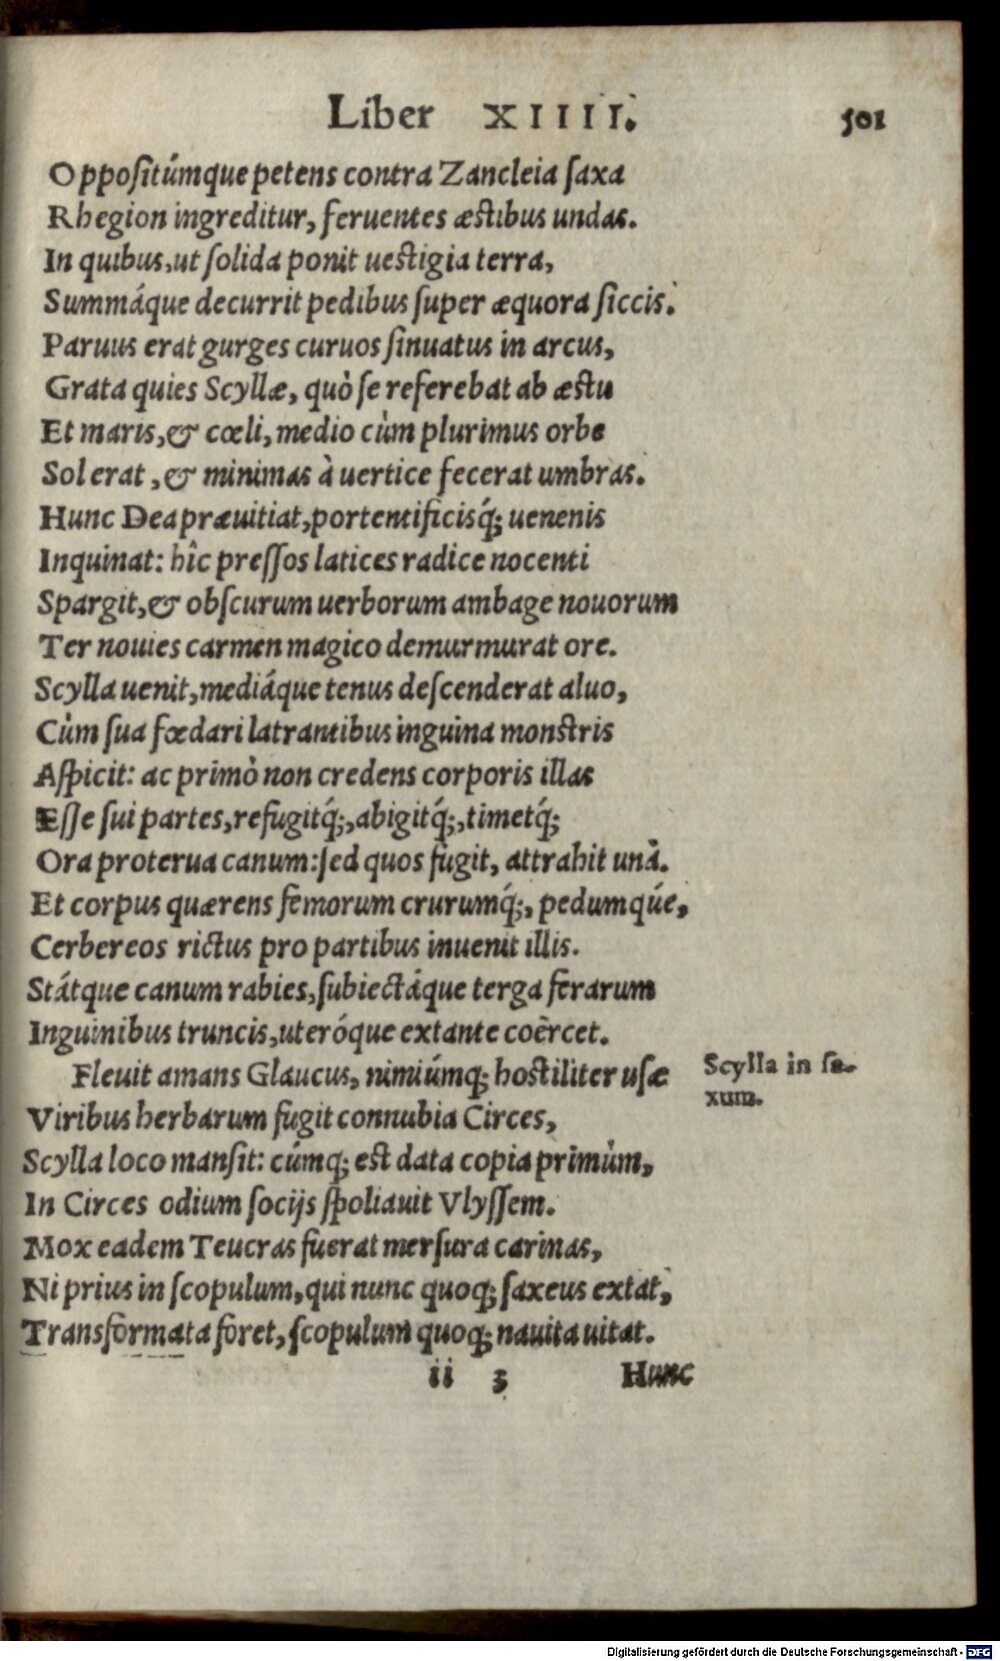 Liber XIIII. 501
Oppositúmque petens contra Zancleia saxa
Rhegion ingreditur, feruentes æstibus undas.
In quibus, ut solida ponit uestigia terra,
Summáque decurrit pedibus super æquora siccis.
Paruus erat gurges curuos sinuatus in arcus,
Grata quies Scyllæ, quò se referebat ab æstu
Et maris, & cœli, medio cùm plurimus orbe
Sol erat, & minimas à uertice fecerat umbras.
Hunc Dea præuitiat, portentificisq́; uenenis
Inquinat: hîc pressos latices radice nocenti
Spargit, & obscurum uerborum ambage nouorum
Ter nouies carmen magico demurmurat ore.
Scylla uenit, mediáque tenus descenderat aluo,
Cùm sua fœdari latrantibus inguina monstris
Aspicit: ac primò non credens corporis illas
Esse sui partes, refugitq́;, abigitq́;, timetq́;
Ora proterua canum: sed quos fugit, attrahit unà.
Et corpus quærens femorum crurumq́;, pedumqúe,
Cerbereos rictus pro partibus inuenit illis.
Státque canum rabies, subiectáque terga ferarum
Inguinibus truncis, uteróque extante coërcet.
Fleuit amans Glaucus, nimiúmq; hostiliter usæ
Scylla in sa-
xum.
Viribus herbarum fugit connubia Circes,
Scylla loco mansit: cúmq; est data copia primùm,
In Circes odium socijs spoliauit Vlyssem.
Mox eadem Teucras fuerat mersura carinas,
Ni prius in scopulum, qui nunc quoq; saxeus extat,
Transformata foret, scopulum quoq; nauita uitat.
ii 3 Hunc
Digitalisierung gefördert durch die Deutsche Forschungsgemeinschaft - DFG